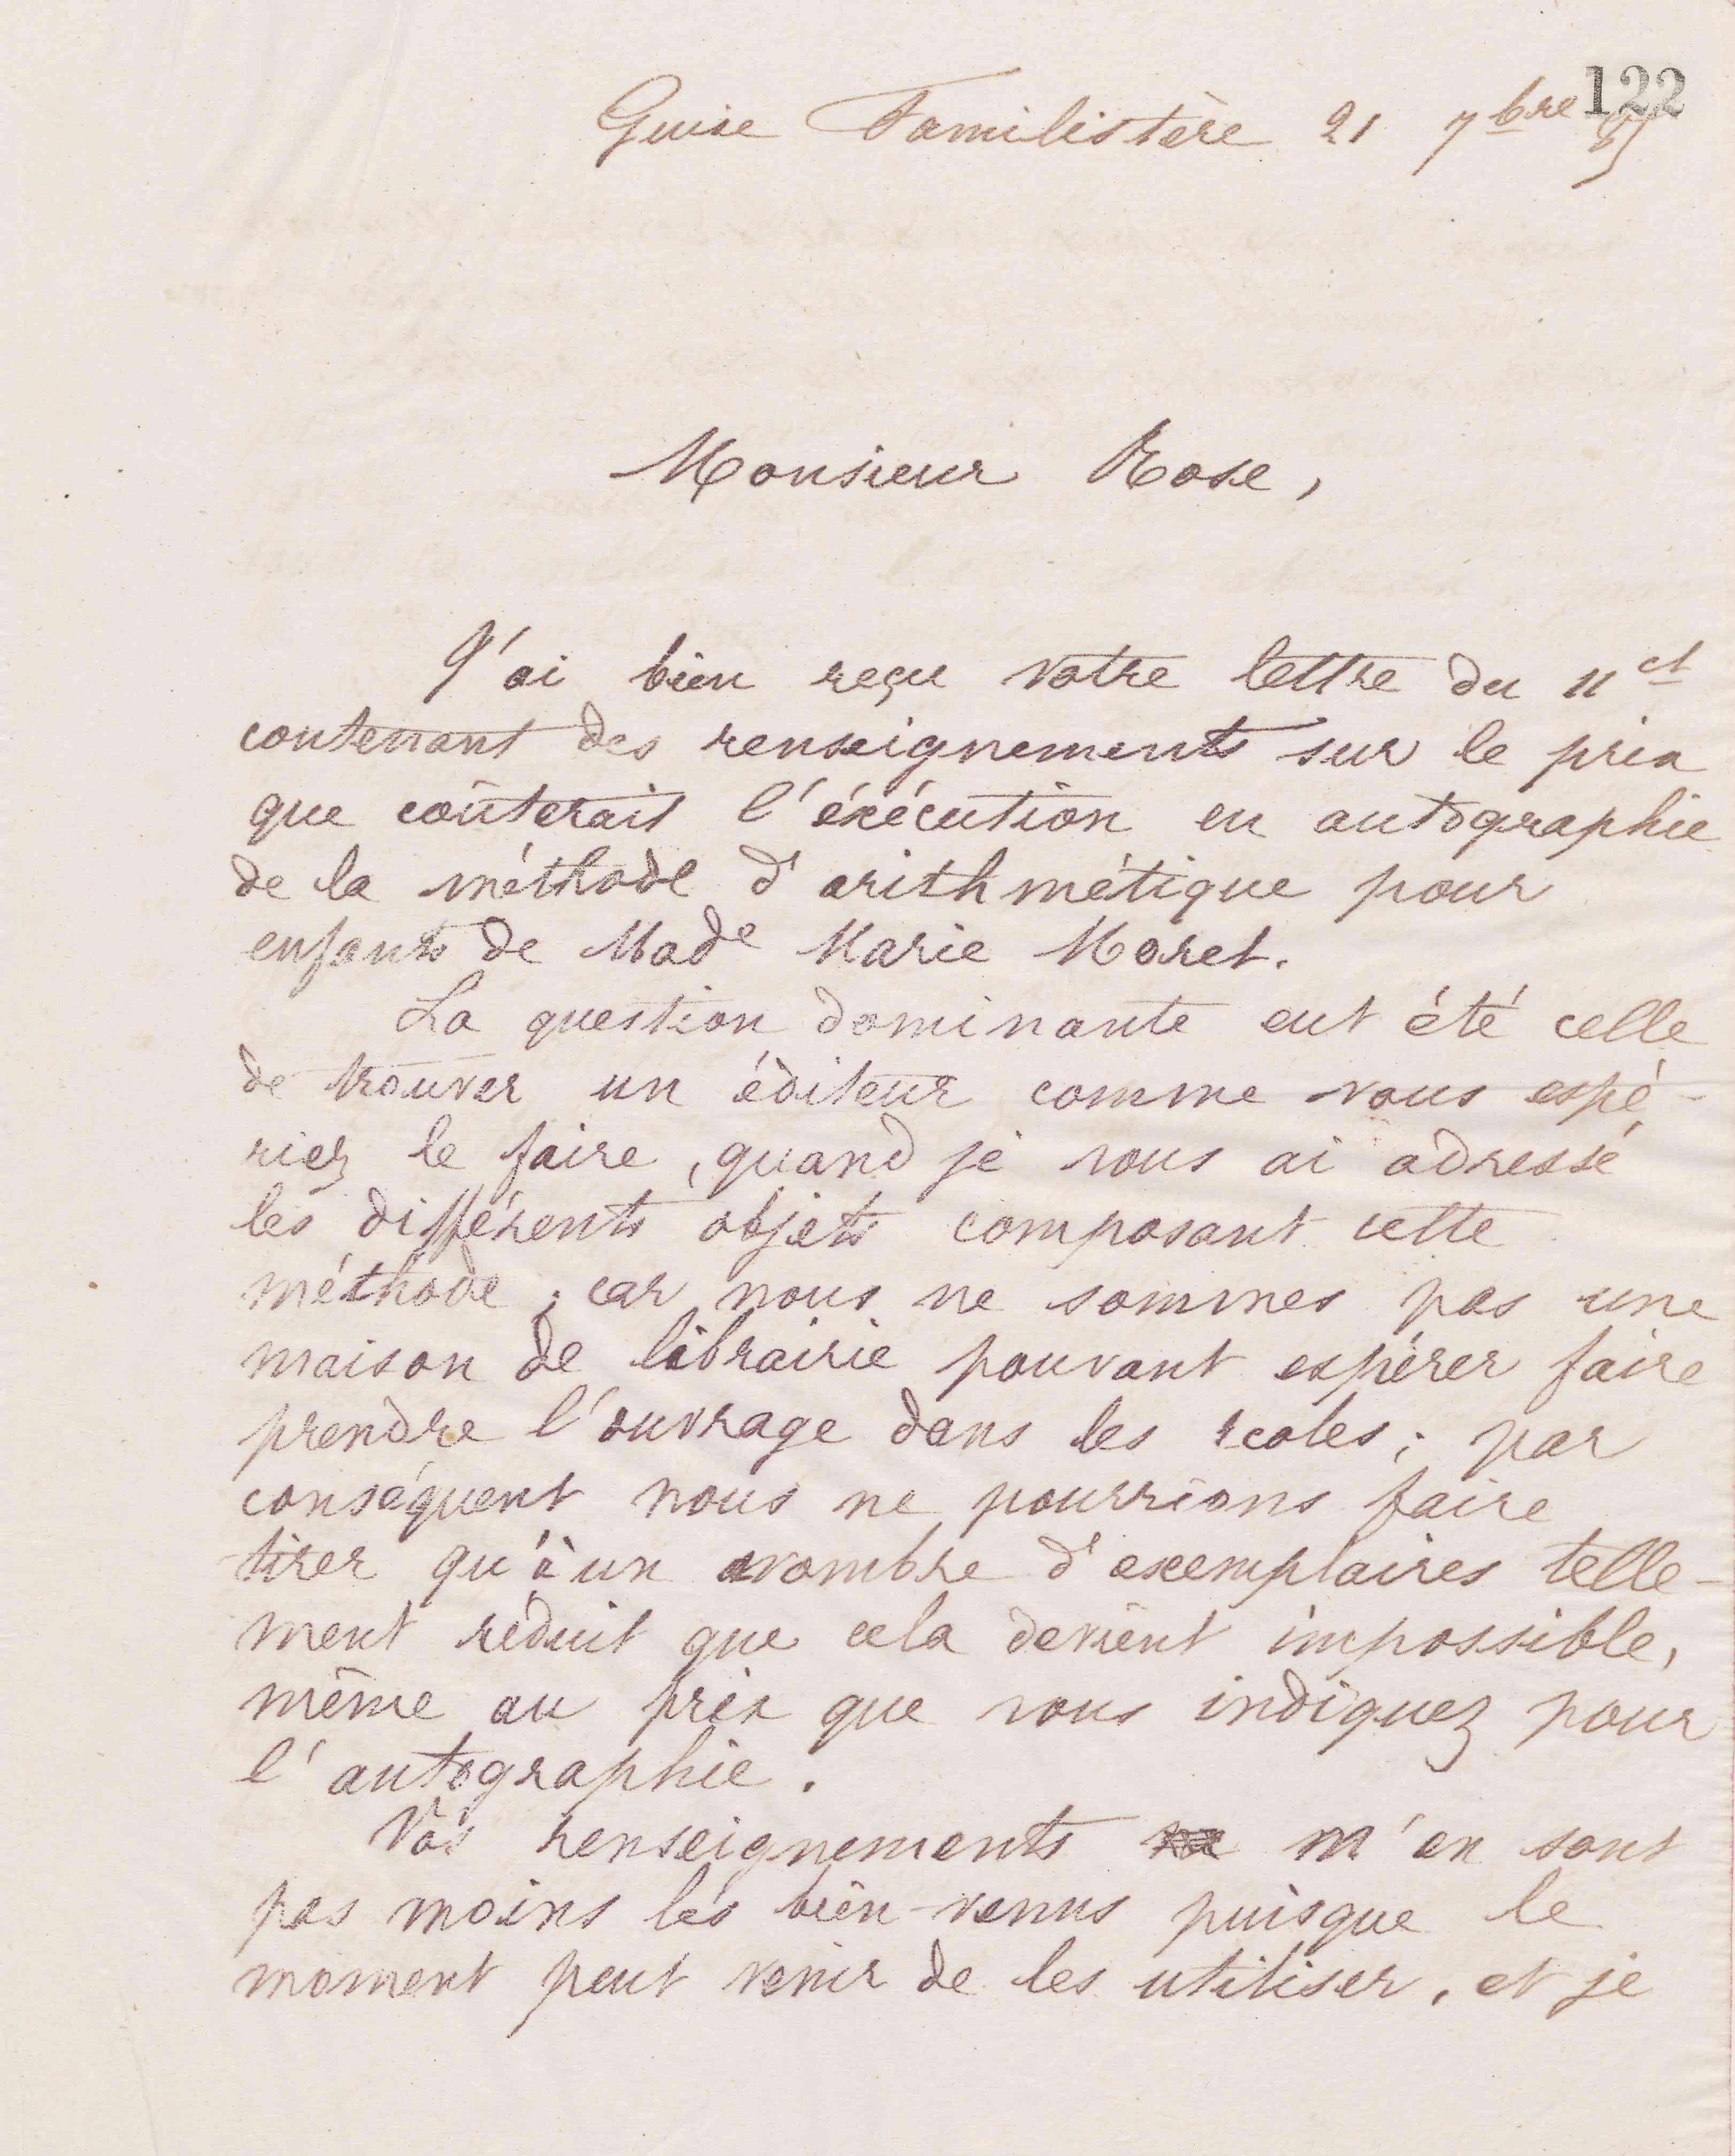 122
Guise Familistère 21 7bre
Monsieur Rose,
J'ai bien reçu votre lettre du 11 ct
contenant des renseignements sur le prix
que coûterait l'éxécution en autographie
de la méthode d'arithmétique pour
enfants de Made Marie Moret.
La question dominante eut été celle
de trouver un éditeur comme vous espé-
riez le faire, quand je vous ai adressé
les différents objets composant cette
méthode ; car nous ne sommes pas une
maison de librairie pouvant espérer faire
prendre l'ouvrage dans les écoles ; par
conséquent nous ne pourrions faire
tirer qu'à un nombre d'exemplaires telle-
ment réduit que cela devient impossible,
même au prix que vous indiquez pour
l'autographie.
Vos renseignements m'en sont
pas moins les bien-venus puisque le
moment peut venir de les utiliser, et je